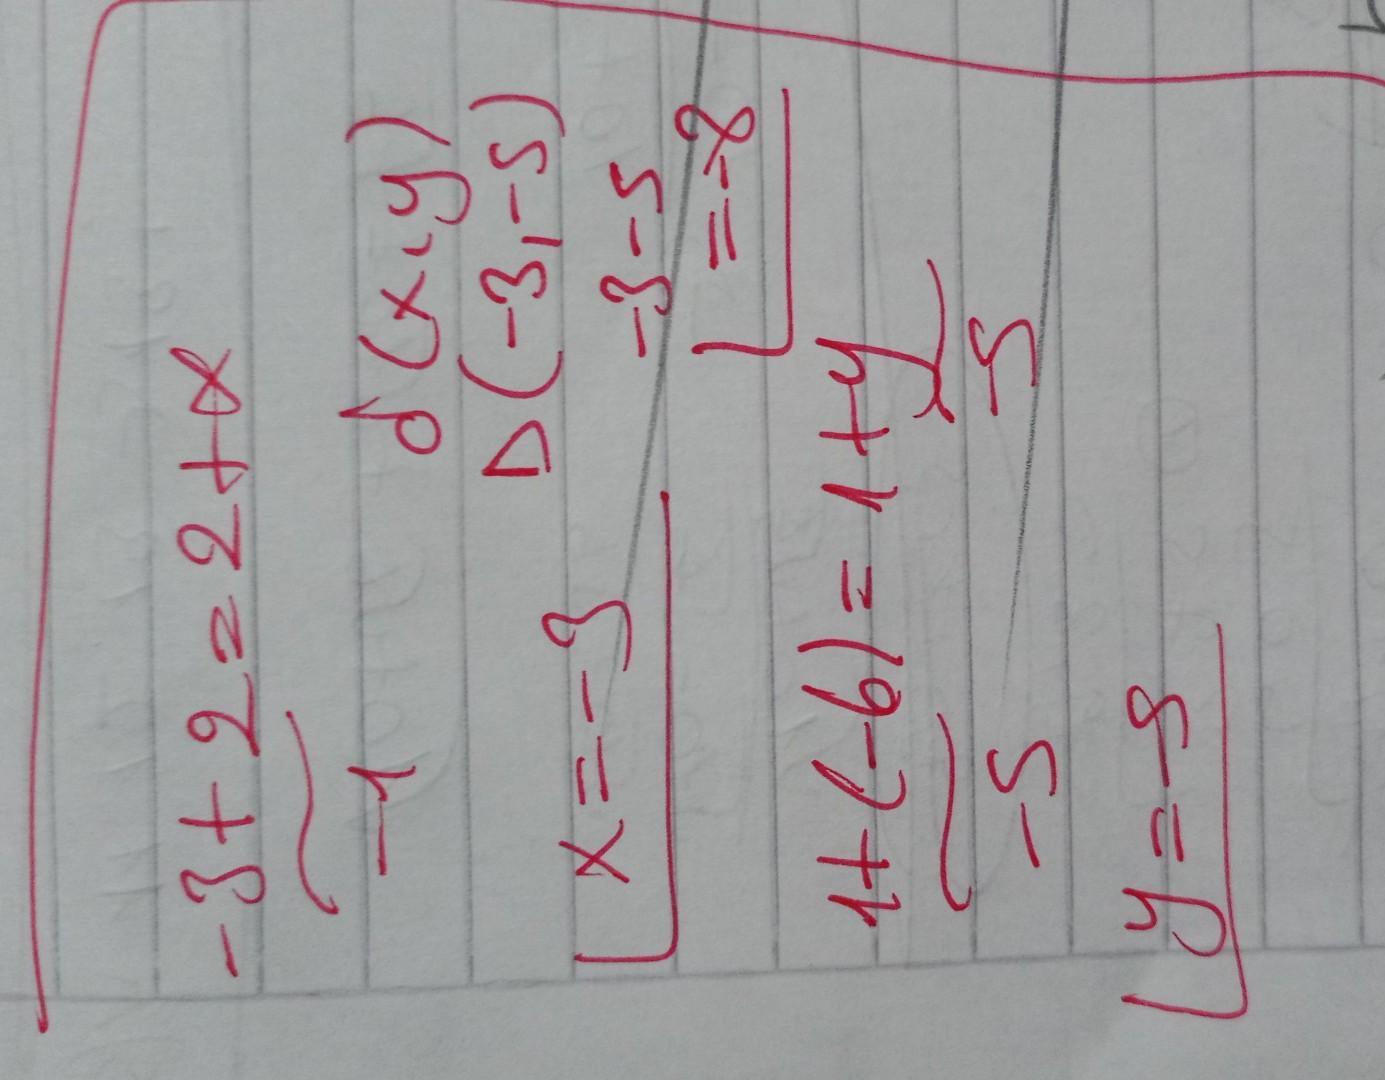 -3+2=2+x
-1
d(x,y)
D(-3,-5)
x=-3
-3-5
=-8
1+(-6)=1+y
-5 -5
y=-5